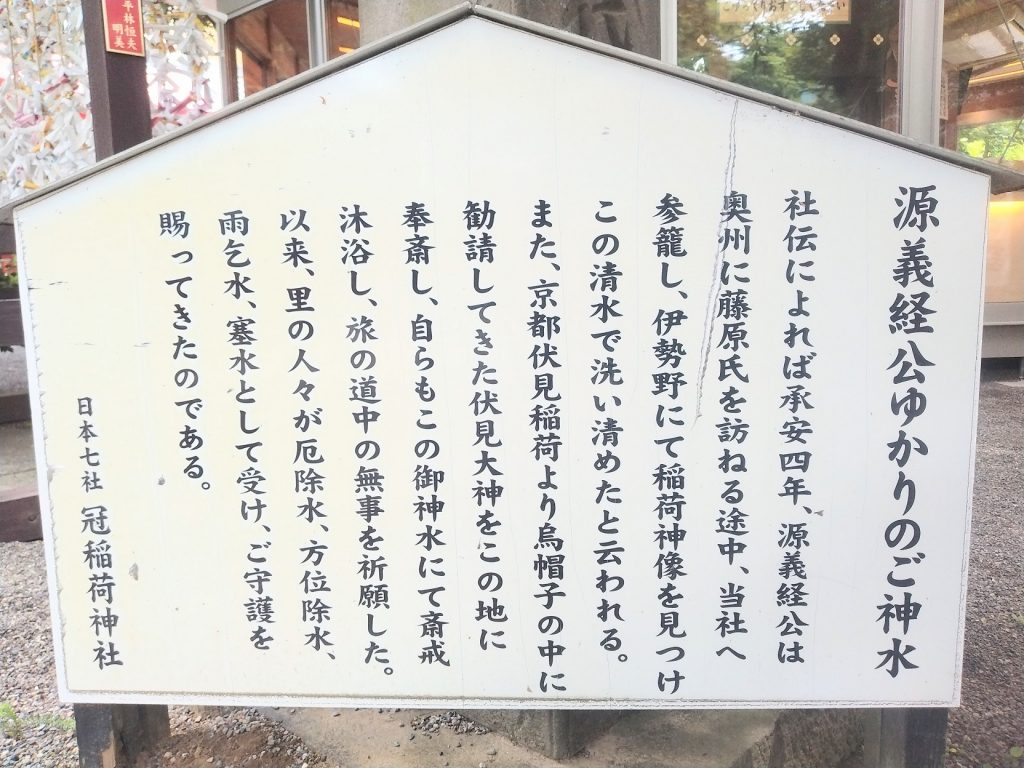 源義経公ゆかりのご神水
社伝によれば承安四年、源義経公は
奥州に藤原氏を訪ねる途中、当社へ
参籠し、伊勢野にて稲荷神像を見つけ
この清水で洗い清めたと云われる。
また、京都伏見稲荷より烏帽子の中に
勧請してきた伏見大神をこの地に
奉斎し、自らもこの御神水にて斎戒
沐浴し、旅の道中の無事を祈願した。
以来、里の人々が厄除水、方位除水、
雨乞水、塞水として受け、ご守護を
賜ってきたのである。
日本七社 冠稲荷神社
平林恒夫
明美